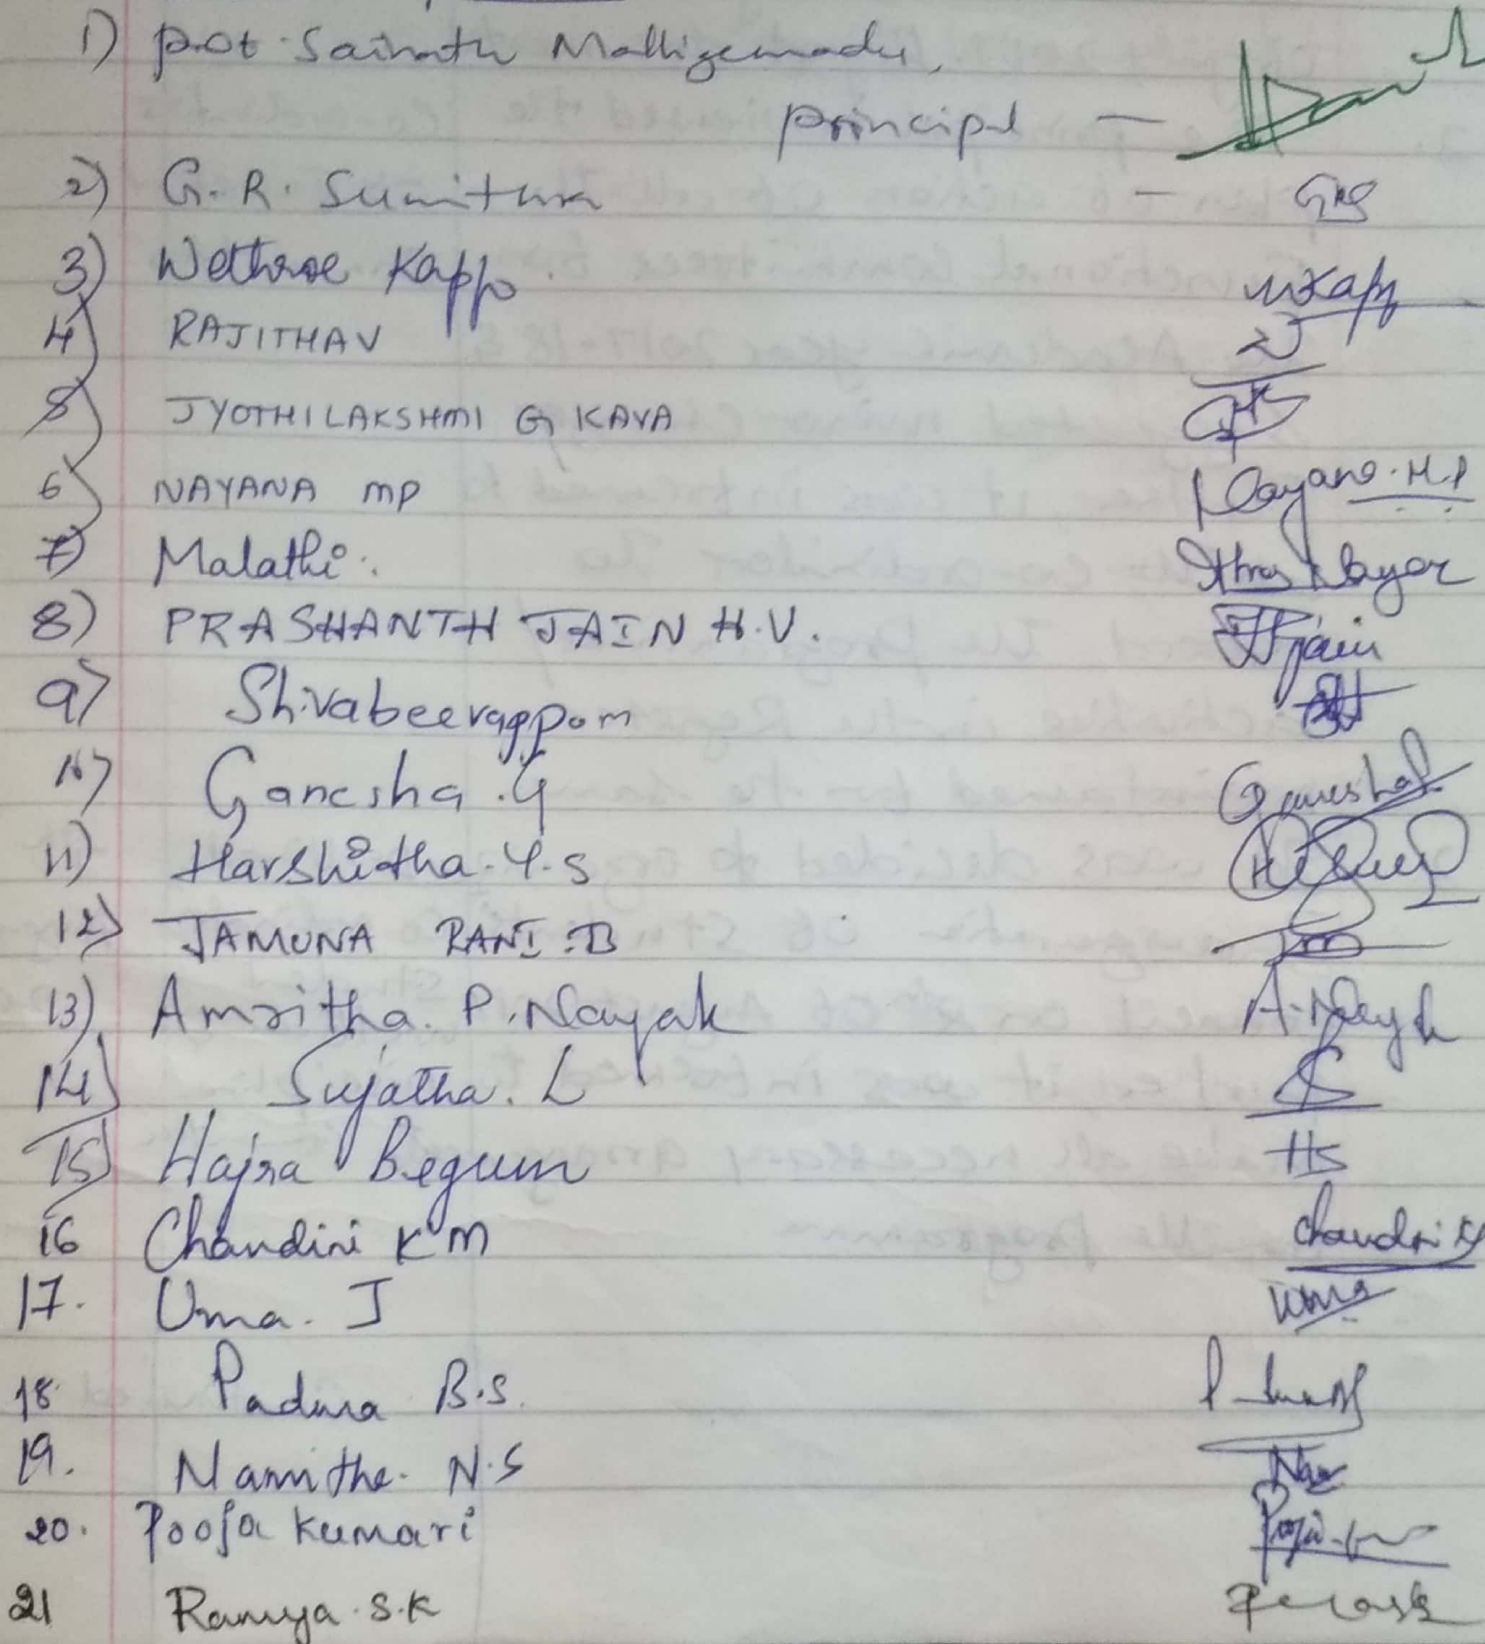 1) Prof. Sainath Malligemadu,
principal —
2) G. R. Sumithra — GRS
3) Wethroe Kappo WKapp
4) RAJITHAV
5) JYOTHILAKSHMI G KAVA
6) NAYANA MP Nayana.M.P
7) Malathi.
8) PRASHANTH JAIN H.V. Jain
9) Shivabeerappa m
10) Ganesha .G Ganesha
11) Harshitha. Y. S
12) JAMUNA RANI. B
13) Amritha. P. Nayak A. Nayak
14) Sujatha. L
15) Hajra Begum HS
16 Chandini K M Chandini
17. Uma. J Uma
18 Padma B.S.
19. Namitha. N.S
20. Pooja Kumari Pooja
21 Ramya. S.K